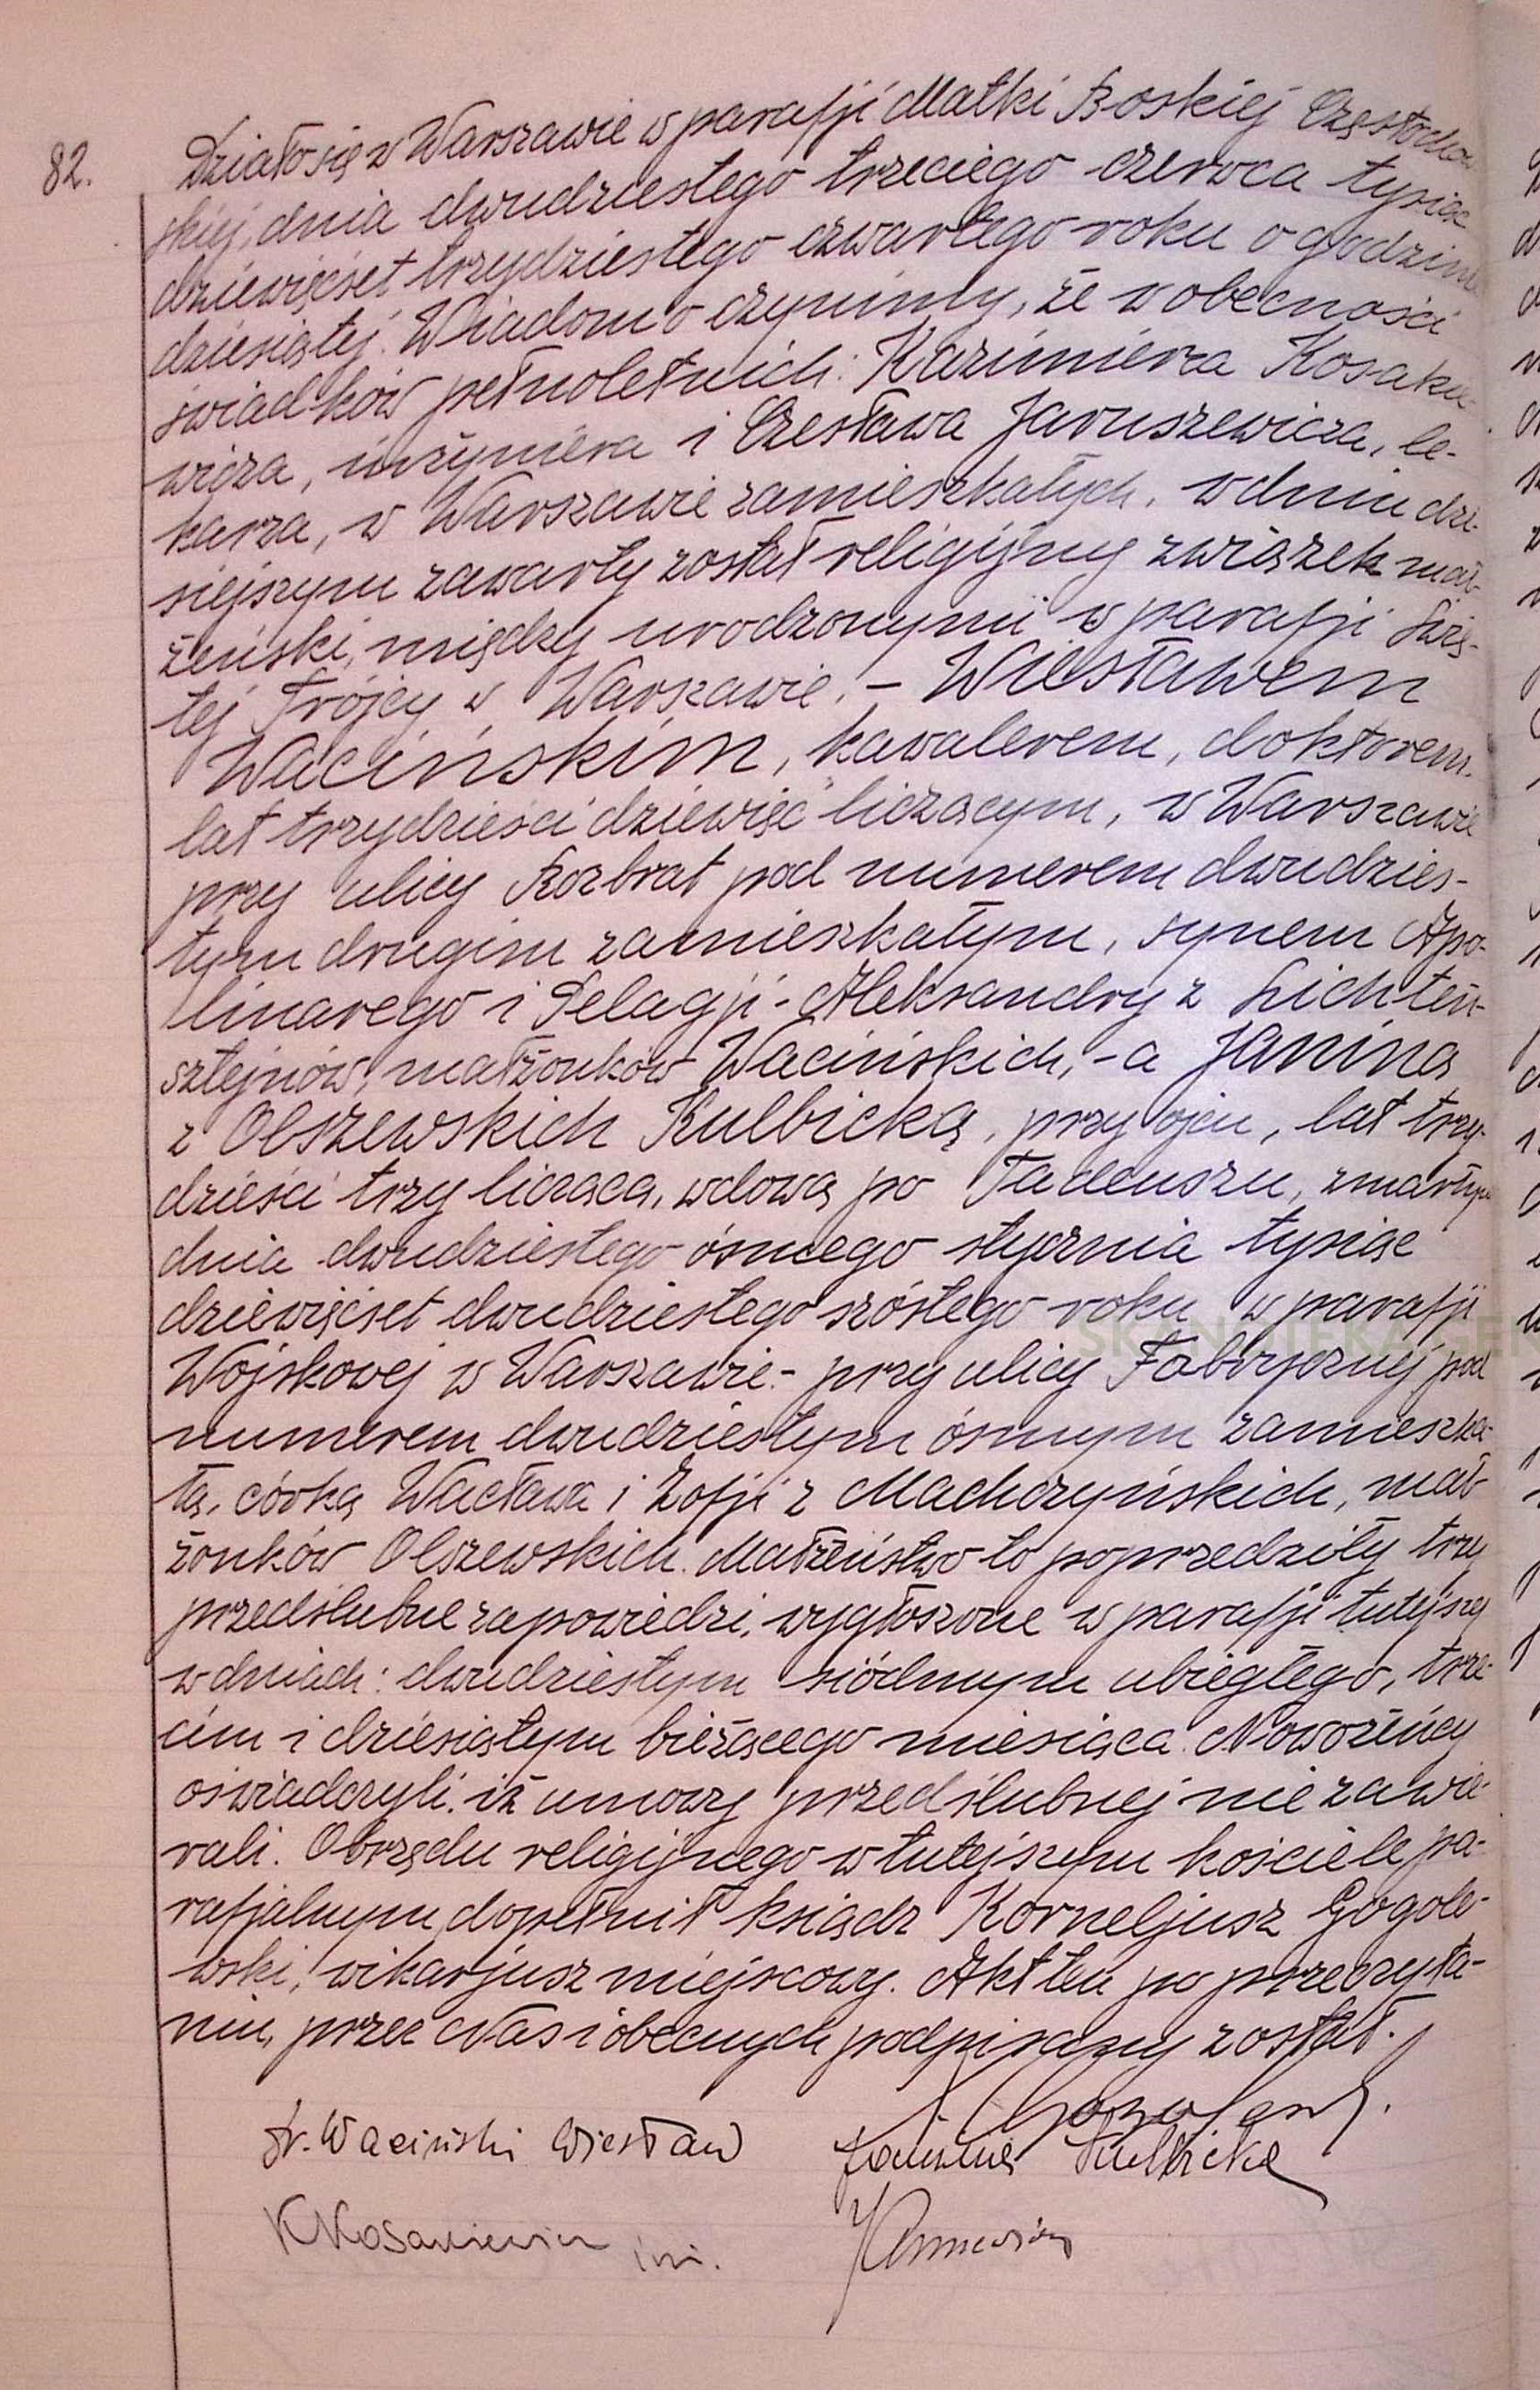 82.
Działo się w Warszawie w parafji Matki Boskiej Częstochow-
skiej, dnia dwudziestego trzeciego czerwca tysiąc
dziewięćset trzydziestego czwartego roku o godzinie
dziesiątej. Wiadomo czynimy, że w obecności
świadków pełnoletnich: Kazimierza Kosakie-
wicza, inżyniera i Czesława Jaruszewicza, le-
karza, w Warszawie zamieszkałych, w dniu dzi-
siejszym zawarty został religijny związek mał-
żeński, między urodzonymi w parafji Świę-
tej Trójcy w Warszawie, - Wiesławem
Wacińskim, kawalerem, doktorem,
lat trzydzieści dziewięć liczącym, w Warszawie
przy ulicy Rozbrat pod numerem dwudzies-
tym drugim zamieszkałym, synem Apo-
linarego i Pelagji-Aleksandry z Lichten-
sztejnów, małżonków Wacińskich, - a Janiną
z Olszewskich Kulbicką, przy ojcu, lat trzy-
dzieści trzy liczącą, wdową po Tadeuszu, zmarłym
dnia dwudziestego ósmego stycznia tysiąc
dziewięćset dwudziestego szóstego roku w parafji
Wojskowej w Warszawie - przy ulicy Fabrycznej pod
numerem dwudziestym ósmym zamieszka-
łą, córką Wacława i Zofji z Machczyńskich, mał-
żonków Olszewskich. Małżeństwo to poprzedziły trzy
przedślubne zapowiedzi, wygłoszone w parafji tutejszej
w dniach: dwudziestym siódmym ubiegłego, trze-
cim i dziesiątym bieżącego miesiąca. Nowożeńcy
oświadczyli, iż umowy przedślubnej nie zawie-
rali. Obrzędu religijnego w tutejszym kościele pa-
rafjalnym dopełnił ksiądz Korneljusz Gogole-
wski, wikarjusz miejscowy. Akt ten po przeczyta-
niu, przez Nas i obecnych podpisany został.
Dr. Waciński Wiesław Janina Kulbicka
K Kosakiewicz inż.